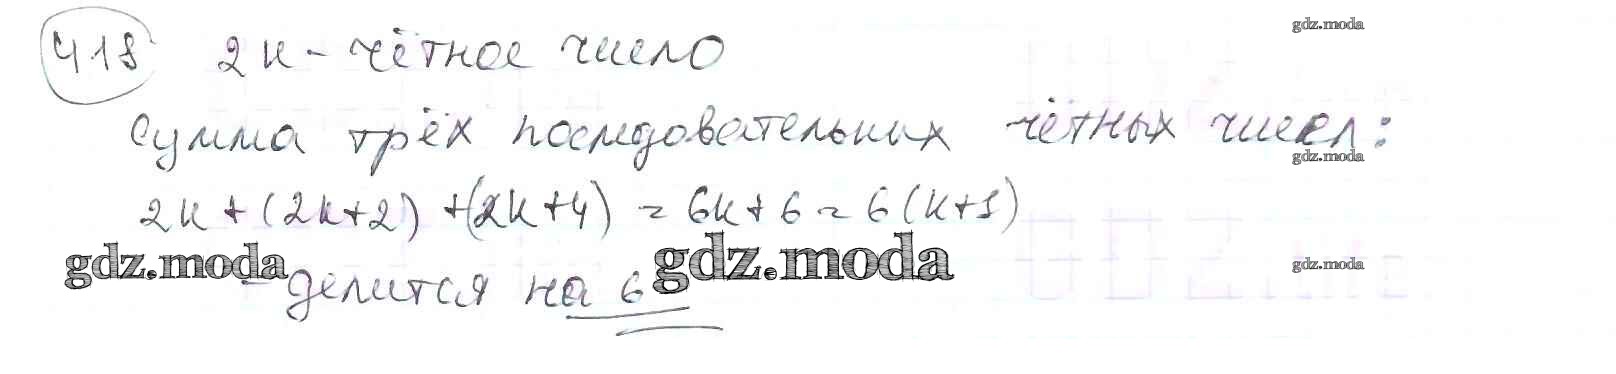 418 2k - чётное число
gdz.moda
Сумма трёх последовательных чётных чисел:
gdz.moda
2k + (2k+2) + (2k+4) = 6k + 6 = 6(k+1)
gdz.moda gdz.moda gdz.moda
- делится на 6